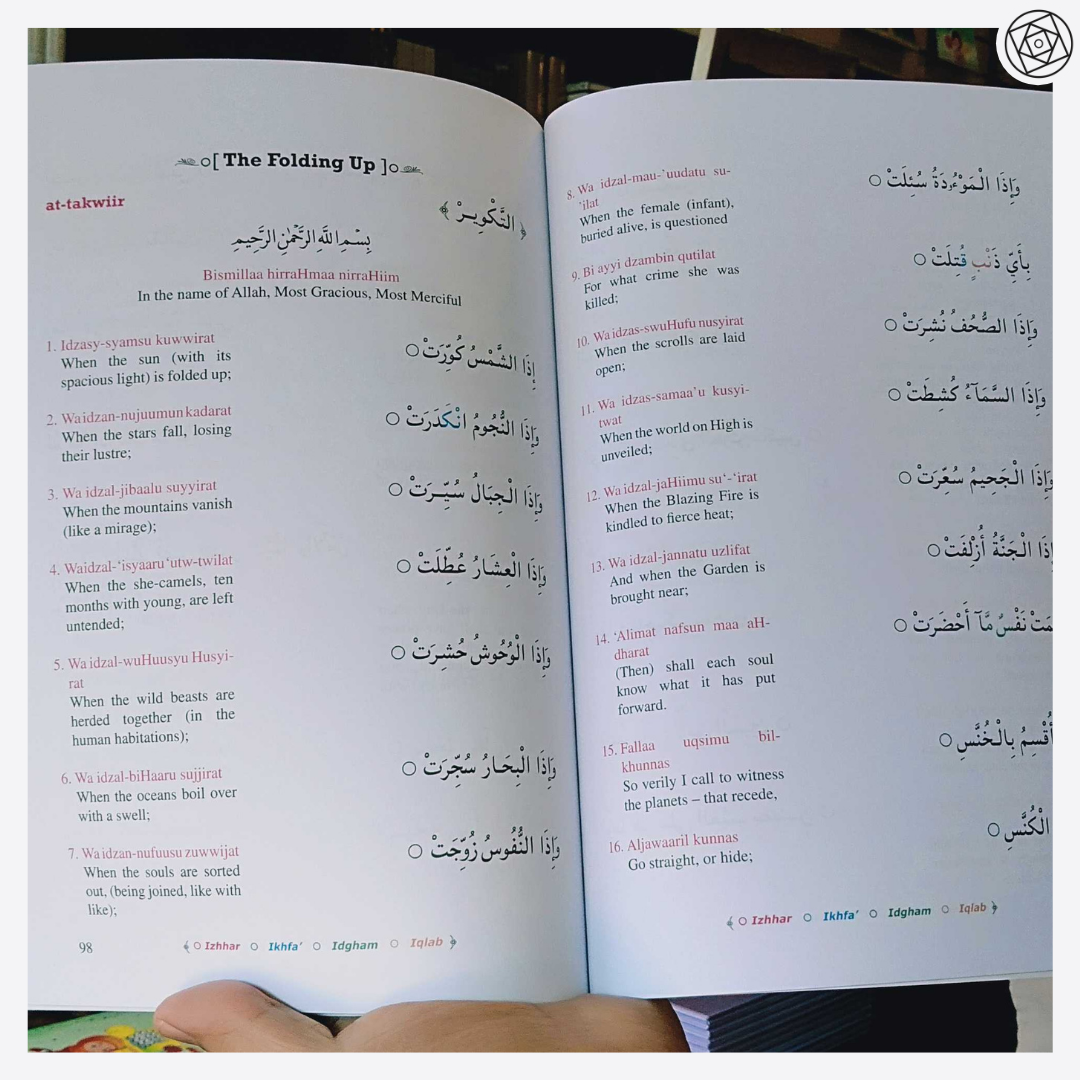 [ The Folding Up ]
at-takwiir
﴿ التَّكْوِيرْ ﴾
بِسْمِ اللَّهِ الرَّحْمٰنِ الرَّحِيمِ
Bismillaa hirraHmaa nirraHiim
In the name of Allah, Most Gracious, Most Merciful
1. Idzasy-syamsu kuwwirat
When the sun (with its
spacious light) is folded up;
إِذَا الشَّمْسُ كُوِّرَتْ ○
2. Wa idzan-nujuumun kadarat
When the stars fall, losing
their lustre;
وَإِذَا النُّجُومُ انْكَدَرَتْ ○
3. Wa idzal-jibaalu suyyirat
When the mountains vanish
(like a mirage);
وَإِذَا الْجِبَالُ سُيِّرَتْ ○
4. Waidzal-‘isyaaru ‘utw-twilat
When the she-camels, ten
months with young, are left
untended;
وَإِذَا الْعِشَارُ عُطِّلَتْ ○
5. Wa idzal-wuHuusyu Husyi-
rat
When the wild beasts are
herded together (in the
human habitations);
وَإِذَا الْوُحُوشُ حُشِرَتْ ○
6. Wa idzal-biHaaru sujjirat
When the oceans boil over
with a swell;
وَإِذَا الْبِحَارُ سُجِّرَتْ ○
7. Wa idzan-nufuusu zuwwijat
When the souls are sorted
out, (being joined, like with
like);
وَإِذَا النُّفُوسُ زُوِّجَتْ ○
98
○ Izhhar ○ Ikhfa’ ○ Idgham ○ Iqlab
8. Wa idzal-mau-’uudatu su-
‘ilat
When the female (infant),
buried alive, is questioned
وَإِذَا الْمَوْءُدَةُ سُئِلَتْ ○
9. Bi ayyi dzambin qutilat
For what crime she was
killed;
بِأَيِّ ذَنْبٍ قُتِلَتْ ○
10. Wa idzas-swuHufu nusyirat
When the scrolls are laid
open;
وَإِذَا الصُّحُفُ نُشِرَتْ ○
11. Wa idzas-samaa’u kusyi-
twat
When the world on High is
unveiled;
وَإِذَا السَّمَآءُ كُشِطَتْ ○
12. Wa idzal-jaHiimu su‘-‘irat
When the Blazing Fire is
kindled to fierce heat;
وَإِذَا الْجَحِيمُ سُعِّرَتْ ○
13. Wa idzal-jannatu uzlifat
And when the Garden is
brought near;
إِذَا الْجَنَّةُ أُزْلِفَتْ ○
14. ‘Alimat nafsun maa aH-
dharat
(Then) shall each soul
know what it has put
forward.
مَتْ نَفْسٌ مَّآ أَحْضَرَتْ ○
15. Fallaa uqsimu bil-
khunnas
So verily I call to witness
the planets – that recede,
أُقْسِمُ بِالْخُنَّسِ ○
16. Aljawaaril kunnas
Go straight, or hide;
الْكُنَّسِ ○
○ Izhhar ○ Ikhfa’ ○ Idgham ○ Iqlab